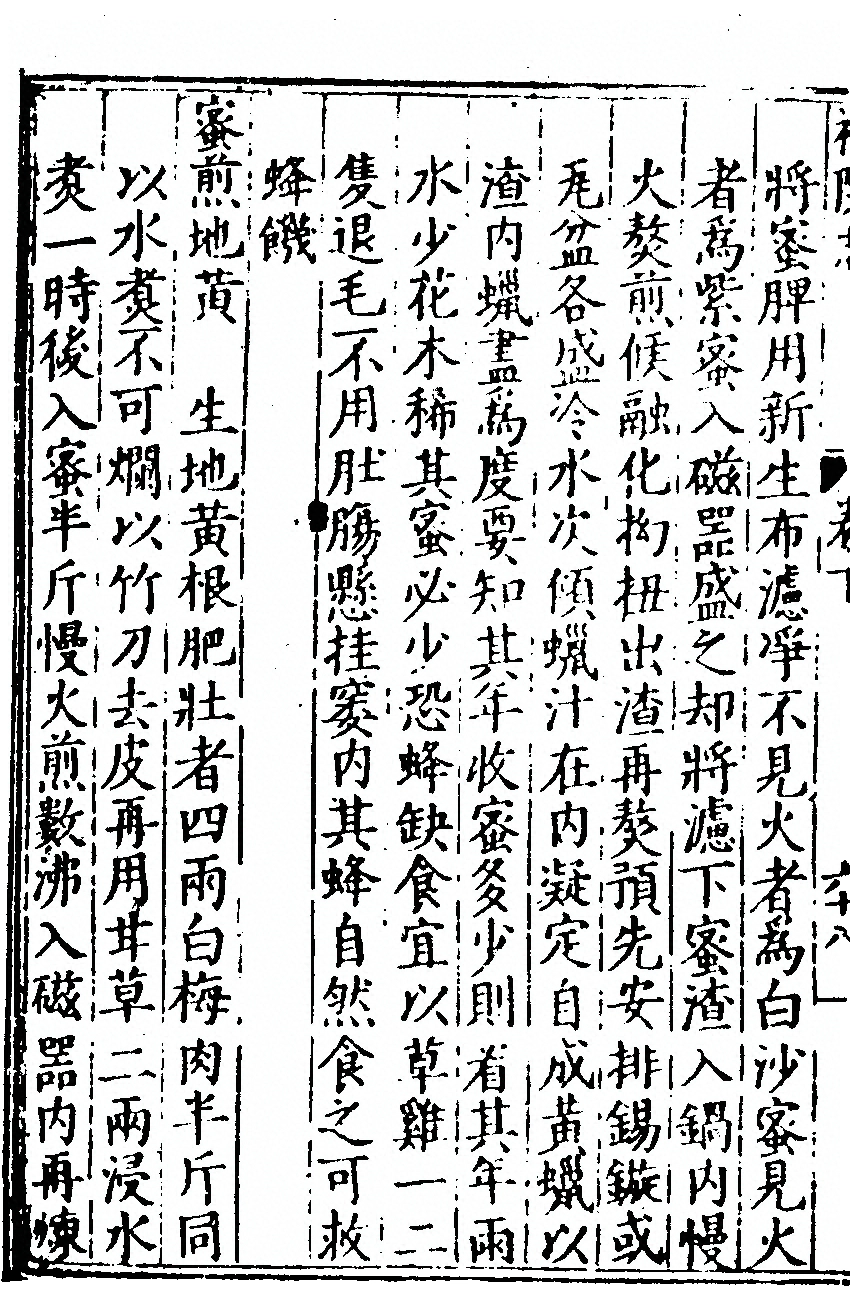 卷下
六十八
將蜜脾用新生布濾淨不見火者爲白沙蜜見火
者爲紫蜜入磁器盛之却將濾下蜜渣入鍋内慢
火熬煎候融化拗扭出渣再熬預先安排錫鏇或
瓦盆各盛冷水次傾蠟汁在内凝定自成黄蠟以
渣内蠟盡爲度要知其年收蜜多少則看其年雨
水少花木稀其蜜必少恐蜂缺食宜以草雞一二
隻退毛不用肚腸懸挂窠内其蜂自然食之可救
蜂饑
蜜煎地黄　生地黄根肥壯者四兩白梅肉半斤同
以水煑不可爛以竹刀去皮再用甘草二兩浸水
煑一時後入蜜半斤慢火煎數沸入磁器内再煉